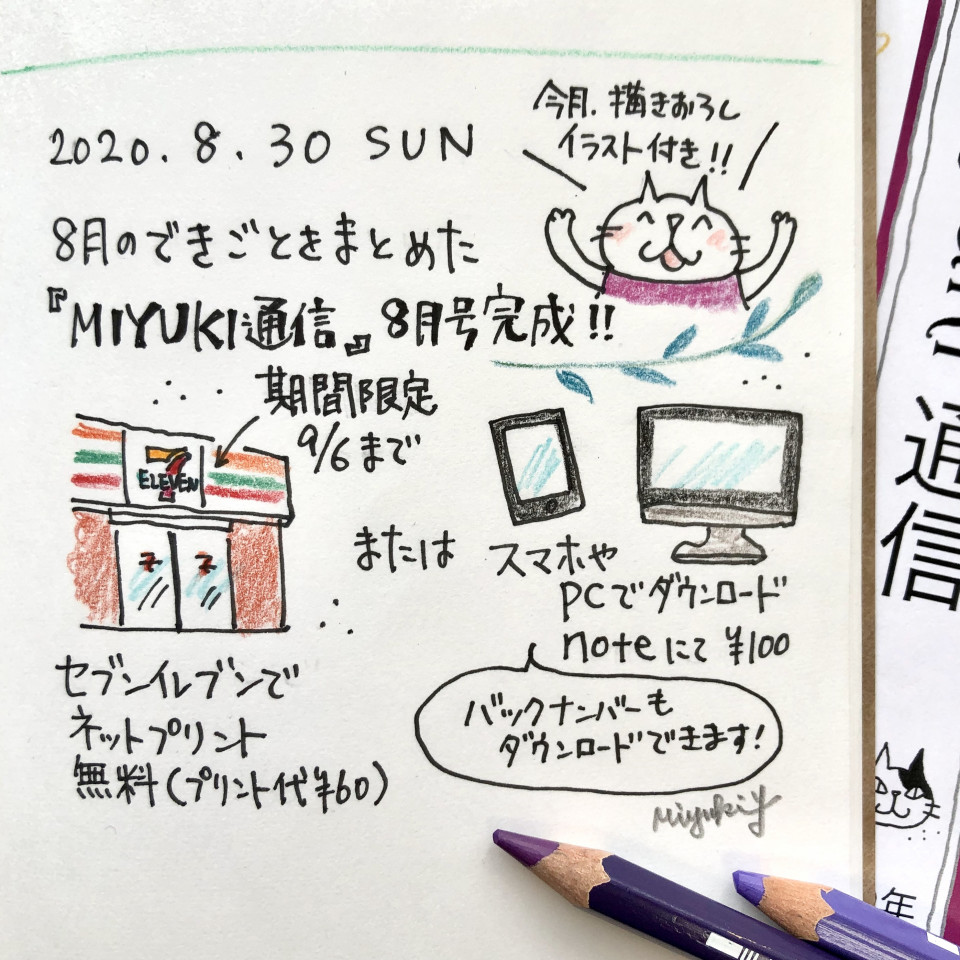 2020.8.30 SUN
今月.描きおろし
イラスト付き!!
8月のできごとをまとめた
『MIYUKI通信』8月号完成!!
期間限定
9/6まで
7
ELEVEN
または
スマホや
PCでダウンロード
noteにて ¥100
セブンイレブンで
ネットプリント
無料(プリント代¥60)
バックナンバーも
ダウンロードできます!
MiyukiY
通信
年